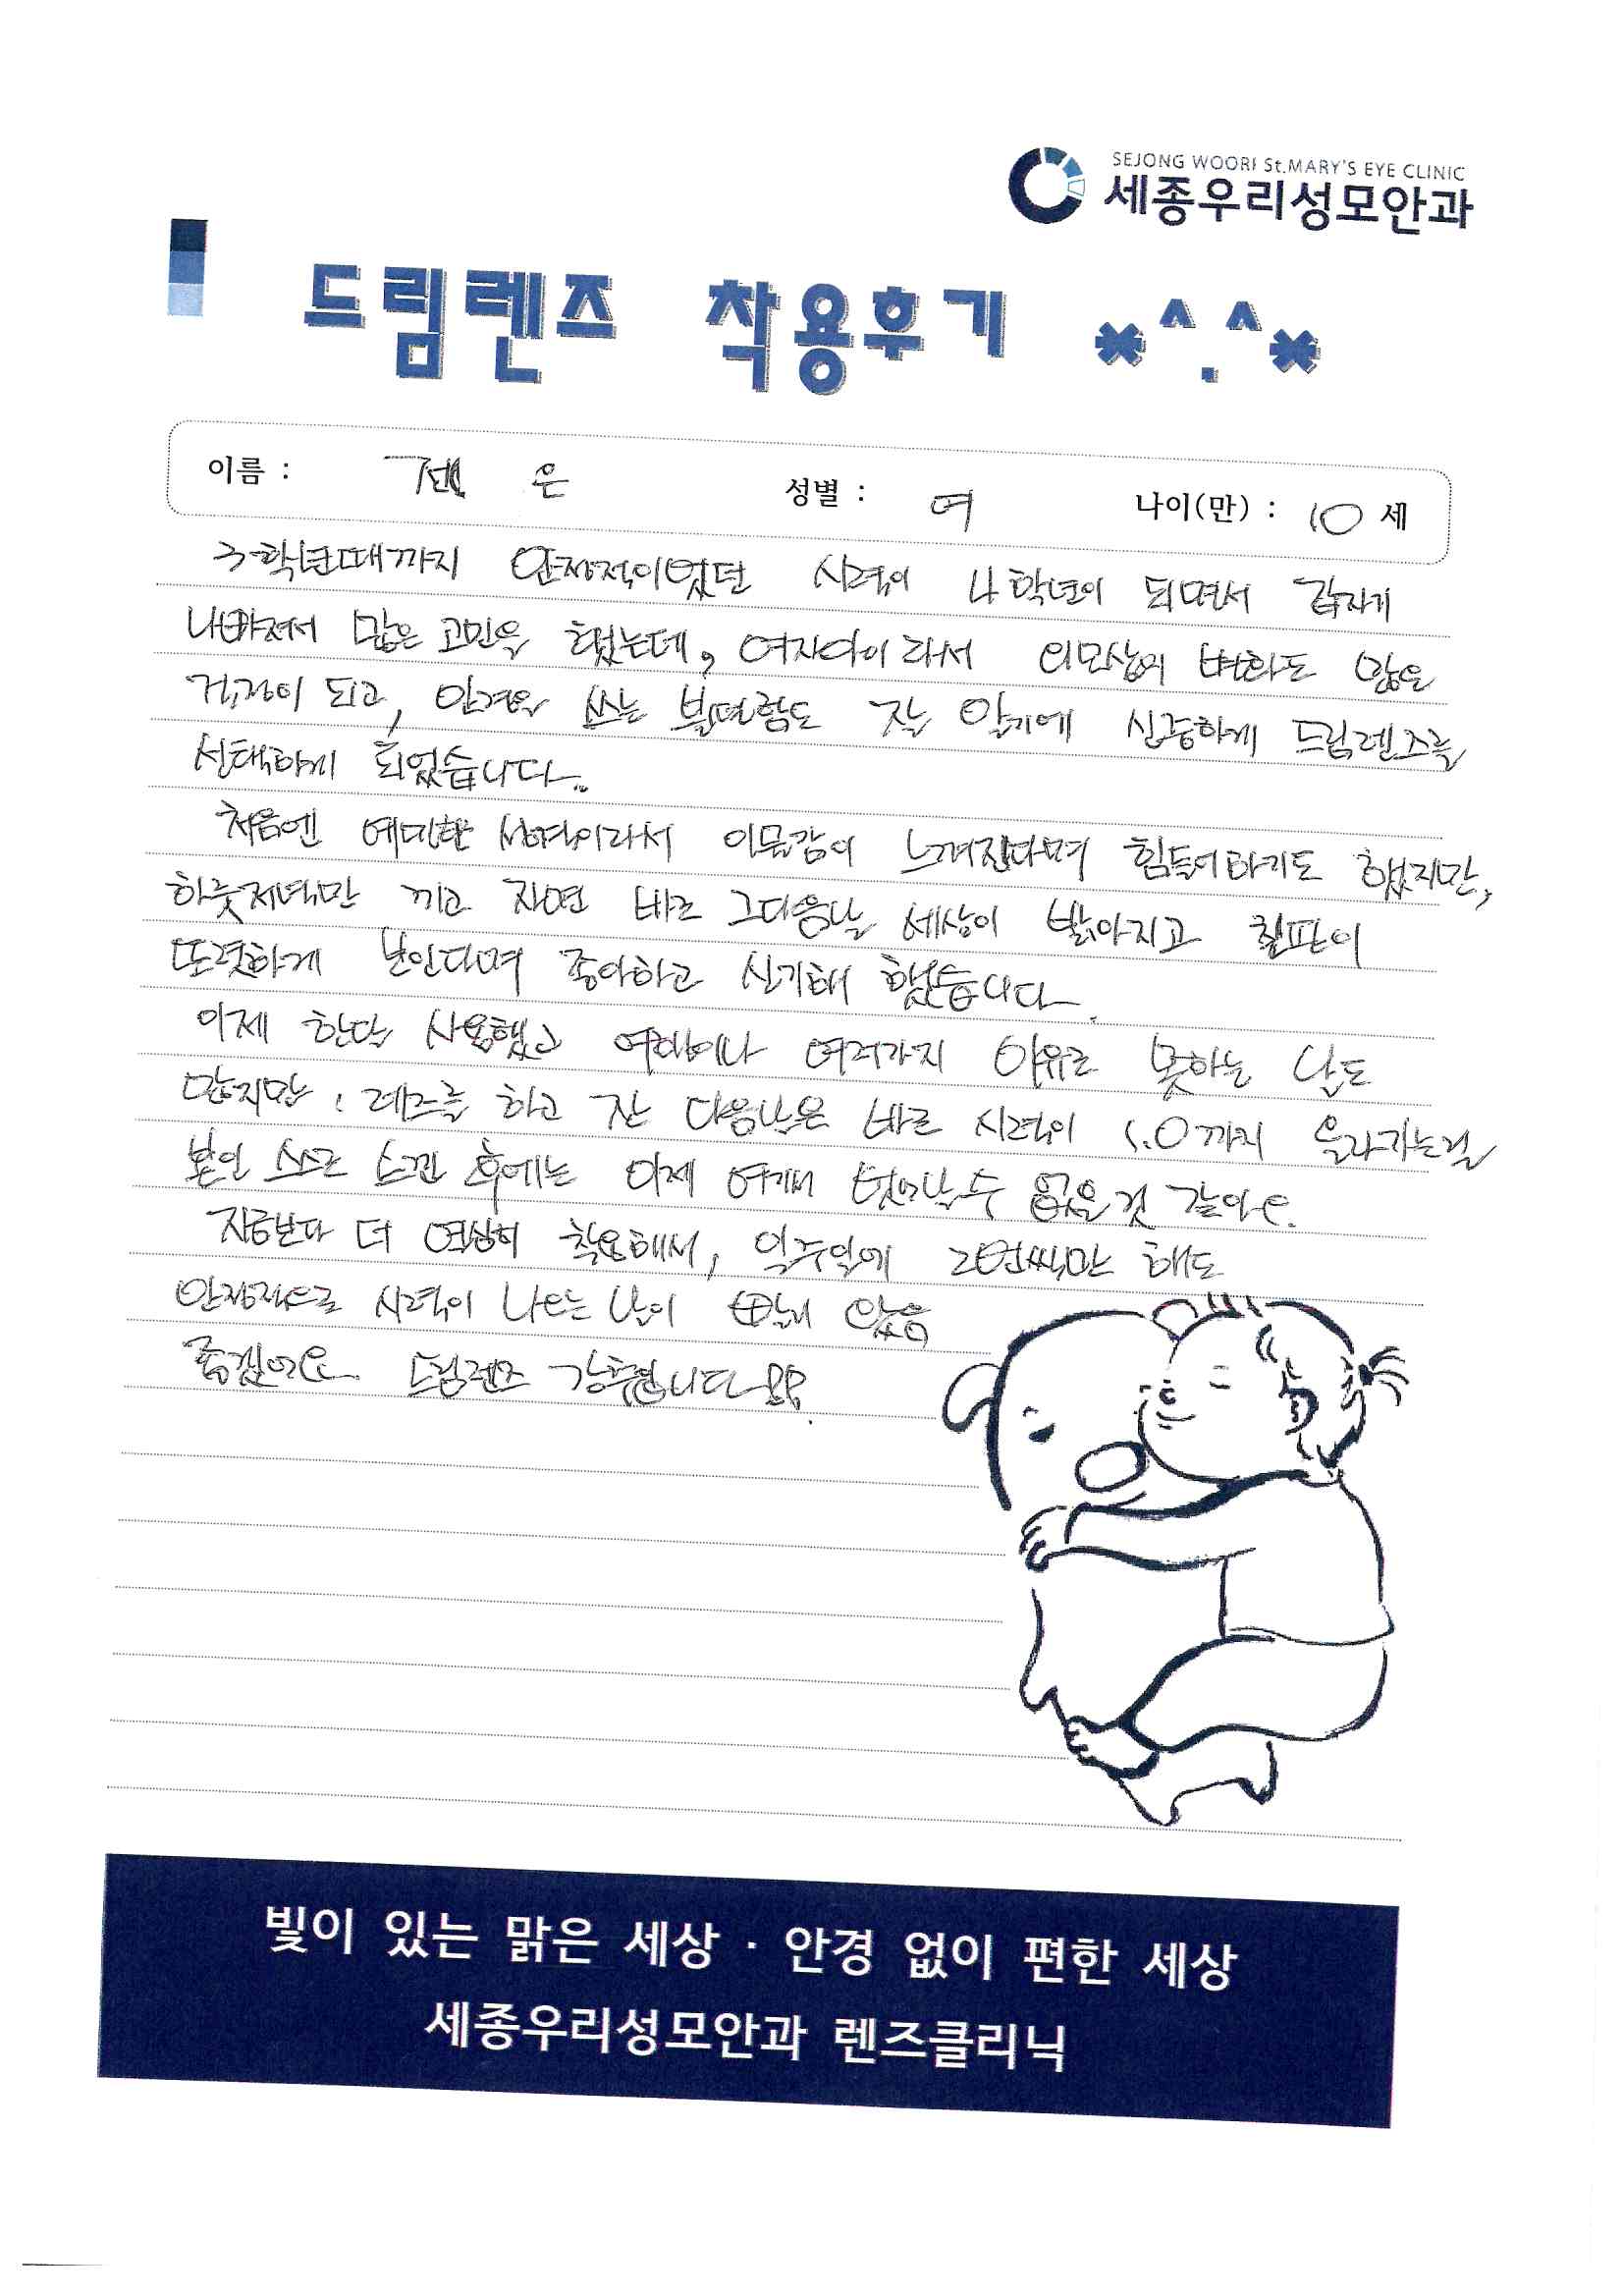 SEJONG WOORI St.MARY'S EYE CLINIC
세종우리성모안과
드림렌즈 착용후기 *^.^*
이름 : 은 성별 : 여 나이(만) : 10 세
3학년때까지 안정적이었던 시력이 4학년이 되면서 갑자기
나빠져서 많은 고민을 했는데, 여자아이라서 외모상의 변화도 많은
걱정이 되고, 안경을 쓰는 불편함도 잘 알기에 신중하게 드림렌즈를
선택하게 되었습니다..
처음엔 예민한 성격이라서 이물감이 느껴진다며 힘들어하기도 했지만,
하룻저녁만 끼고 자면 바로 그다음날 세상이 밝아지고 칠판이
또렷하게 보인다며 좋아하고 신기해 했습니다.
이제 한달 사용했고 여행이나 여러가지 이유로 못하는 날도
많지만, 렌즈를 하고 잔 다음날은 바로 시력이 1.0까지 올라가는걸
본인 스스로 느낀 후에는 이제 여기서 벗어날 수 없을 것 같아요.
지금보다 더 열심히 착용해서, 일주일에 2번씩만 해도
안정적으로 시력이 나오는 날이 빨리 왔음
좋겠어요. 드림렌즈 강추합니다
빛이 있는 맑은 세상 · 안경 없이 편한 세상
세종우리성모안과 렌즈클리닉